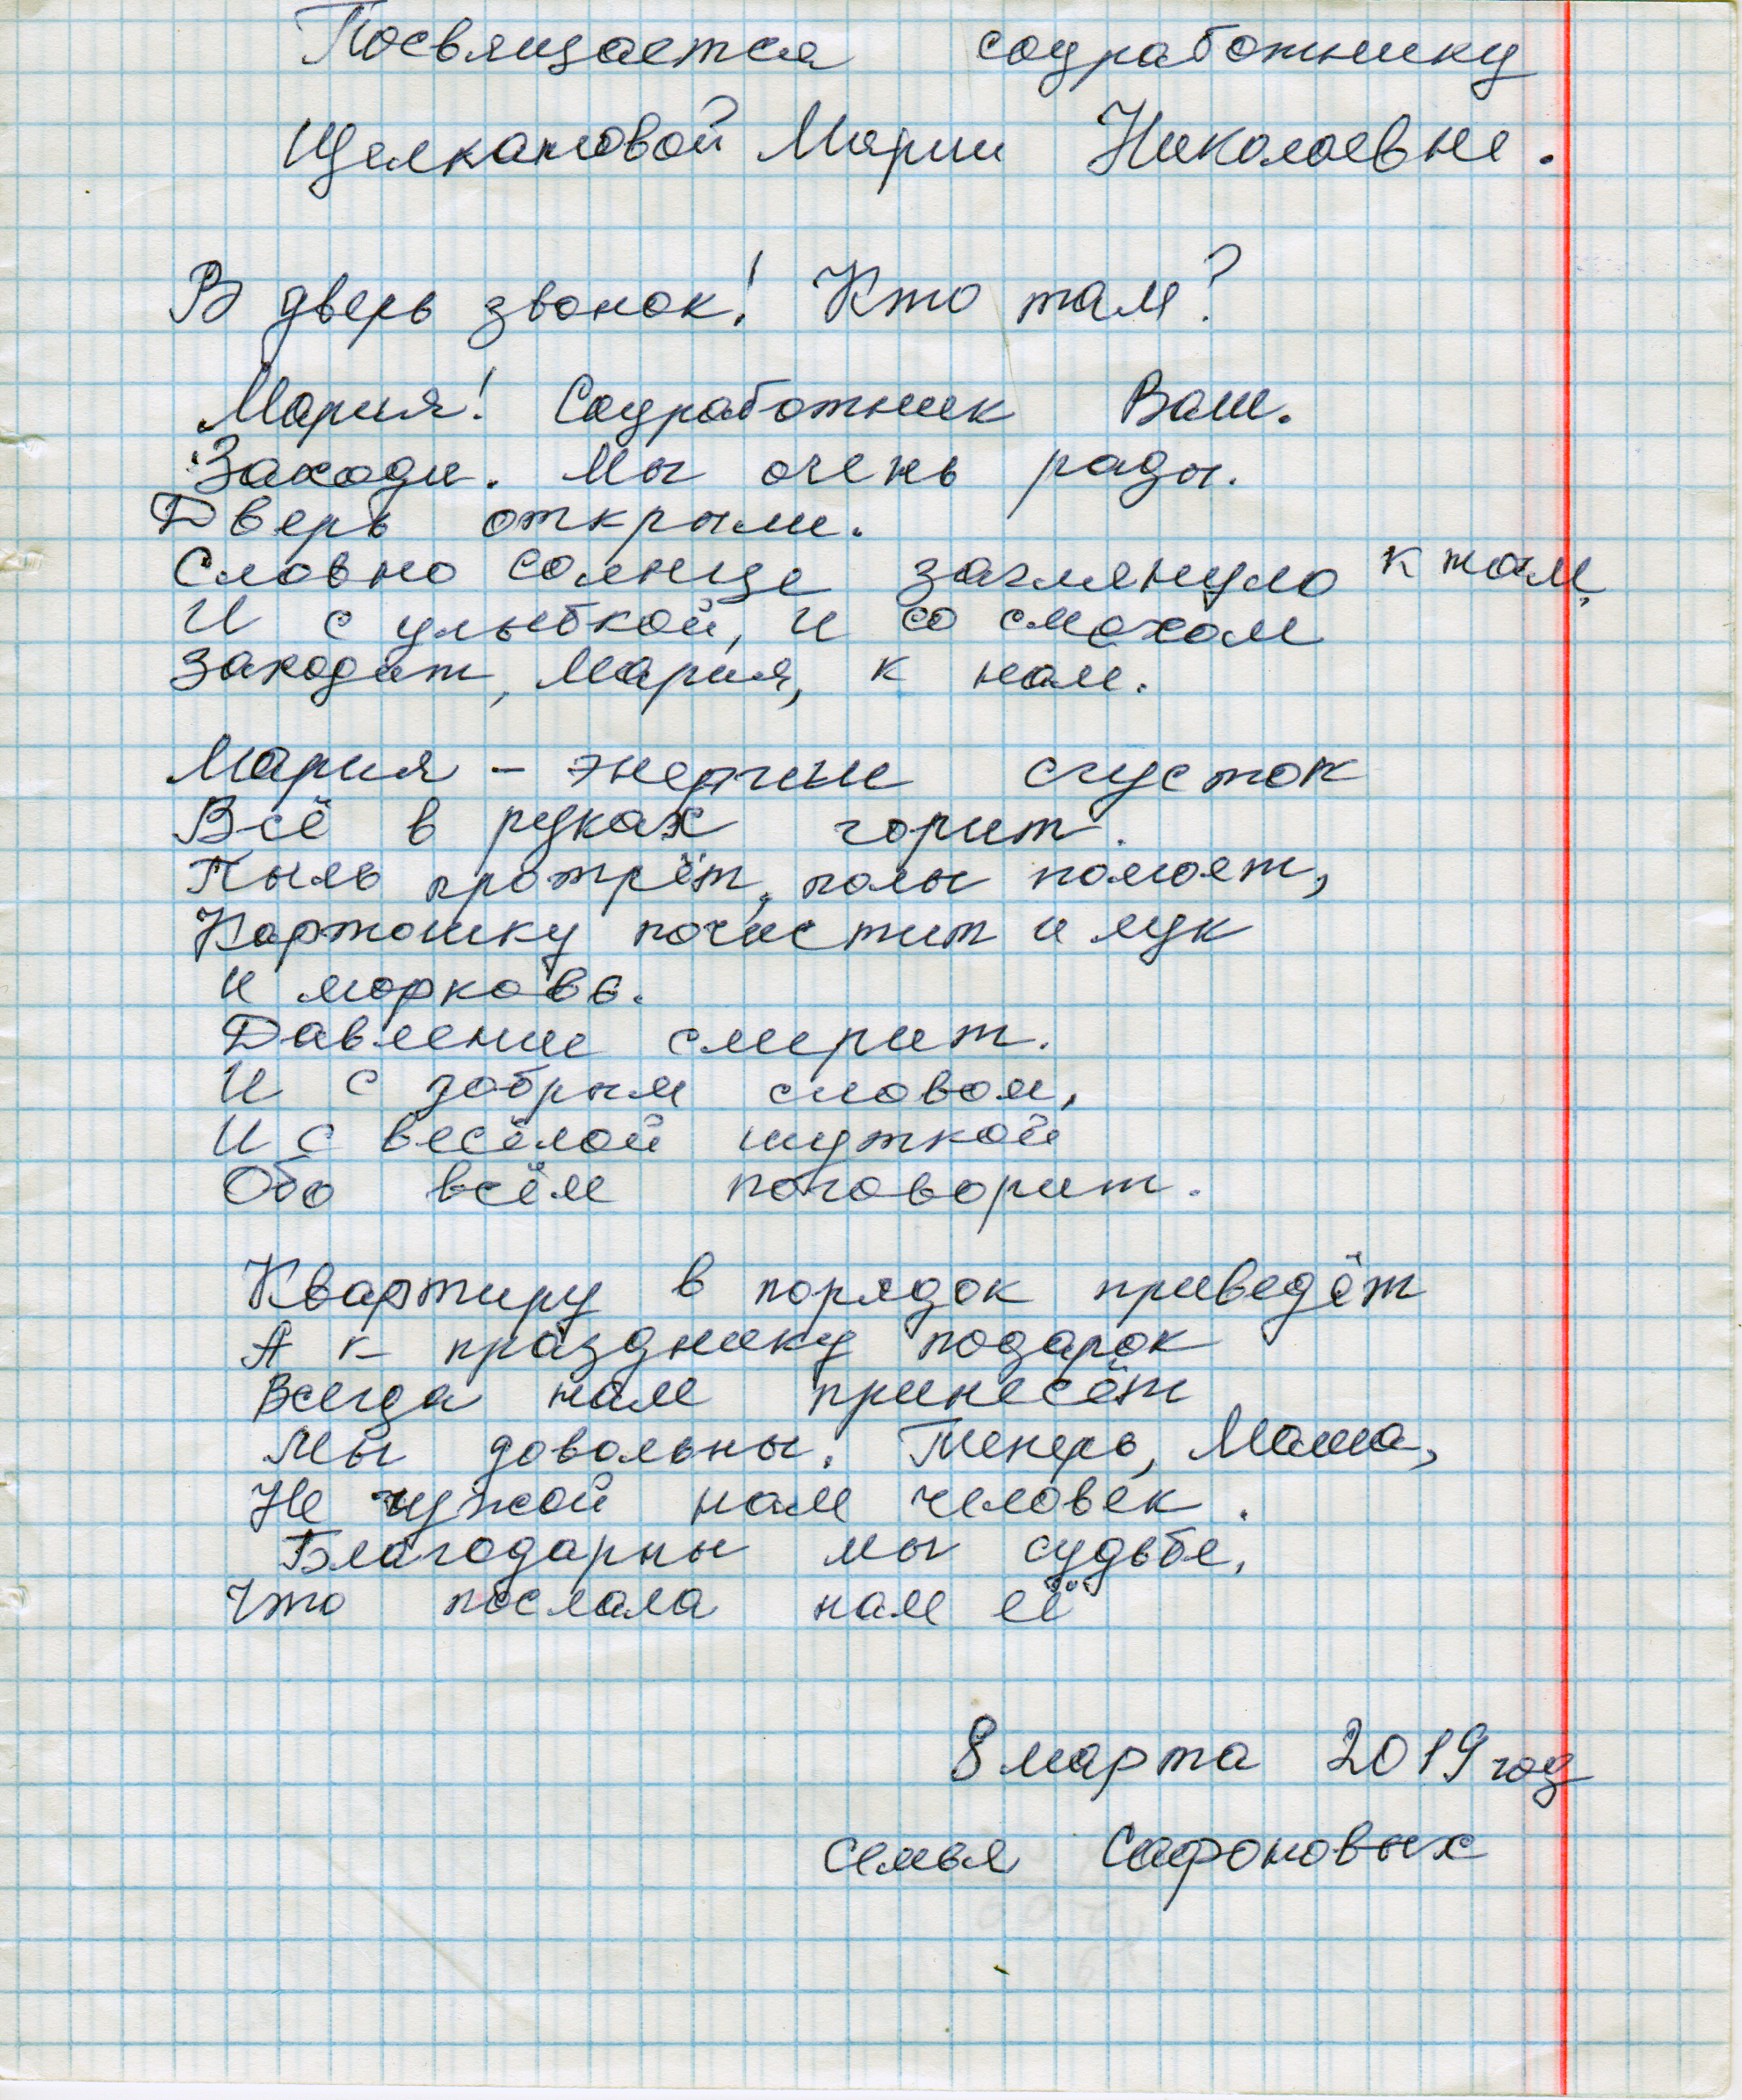 Посвящается соцработнику
Щелкановой Марии Николаевне.
В дверь звонок! Кто там?
Мария! Соцработник Ваш.
Заходи. Мы очень рады.
Дверь открыли.
Словно солнце заглянуло к нам,
И с улыбкой, и со смехом
Заходит, Мария, к нам.
Мария – энергии сгусток
Всё в руках горит.
Пыль протрёт, полы помоет,
Картошку почистит и лук
и морковь.
Давление смерит.
И с добрым словом,
И с весёлой шуткой
Обо всём поговорит.
Квартиру в порядок приведёт
А к празднику подарок
Всегда нам принесёт
Мы довольны. Теперь, Маша,
Не чужой нам человек.
Благодарны мы судьбе,
Что послала нам её
8 марта 2019 год
Семья Сафоновых